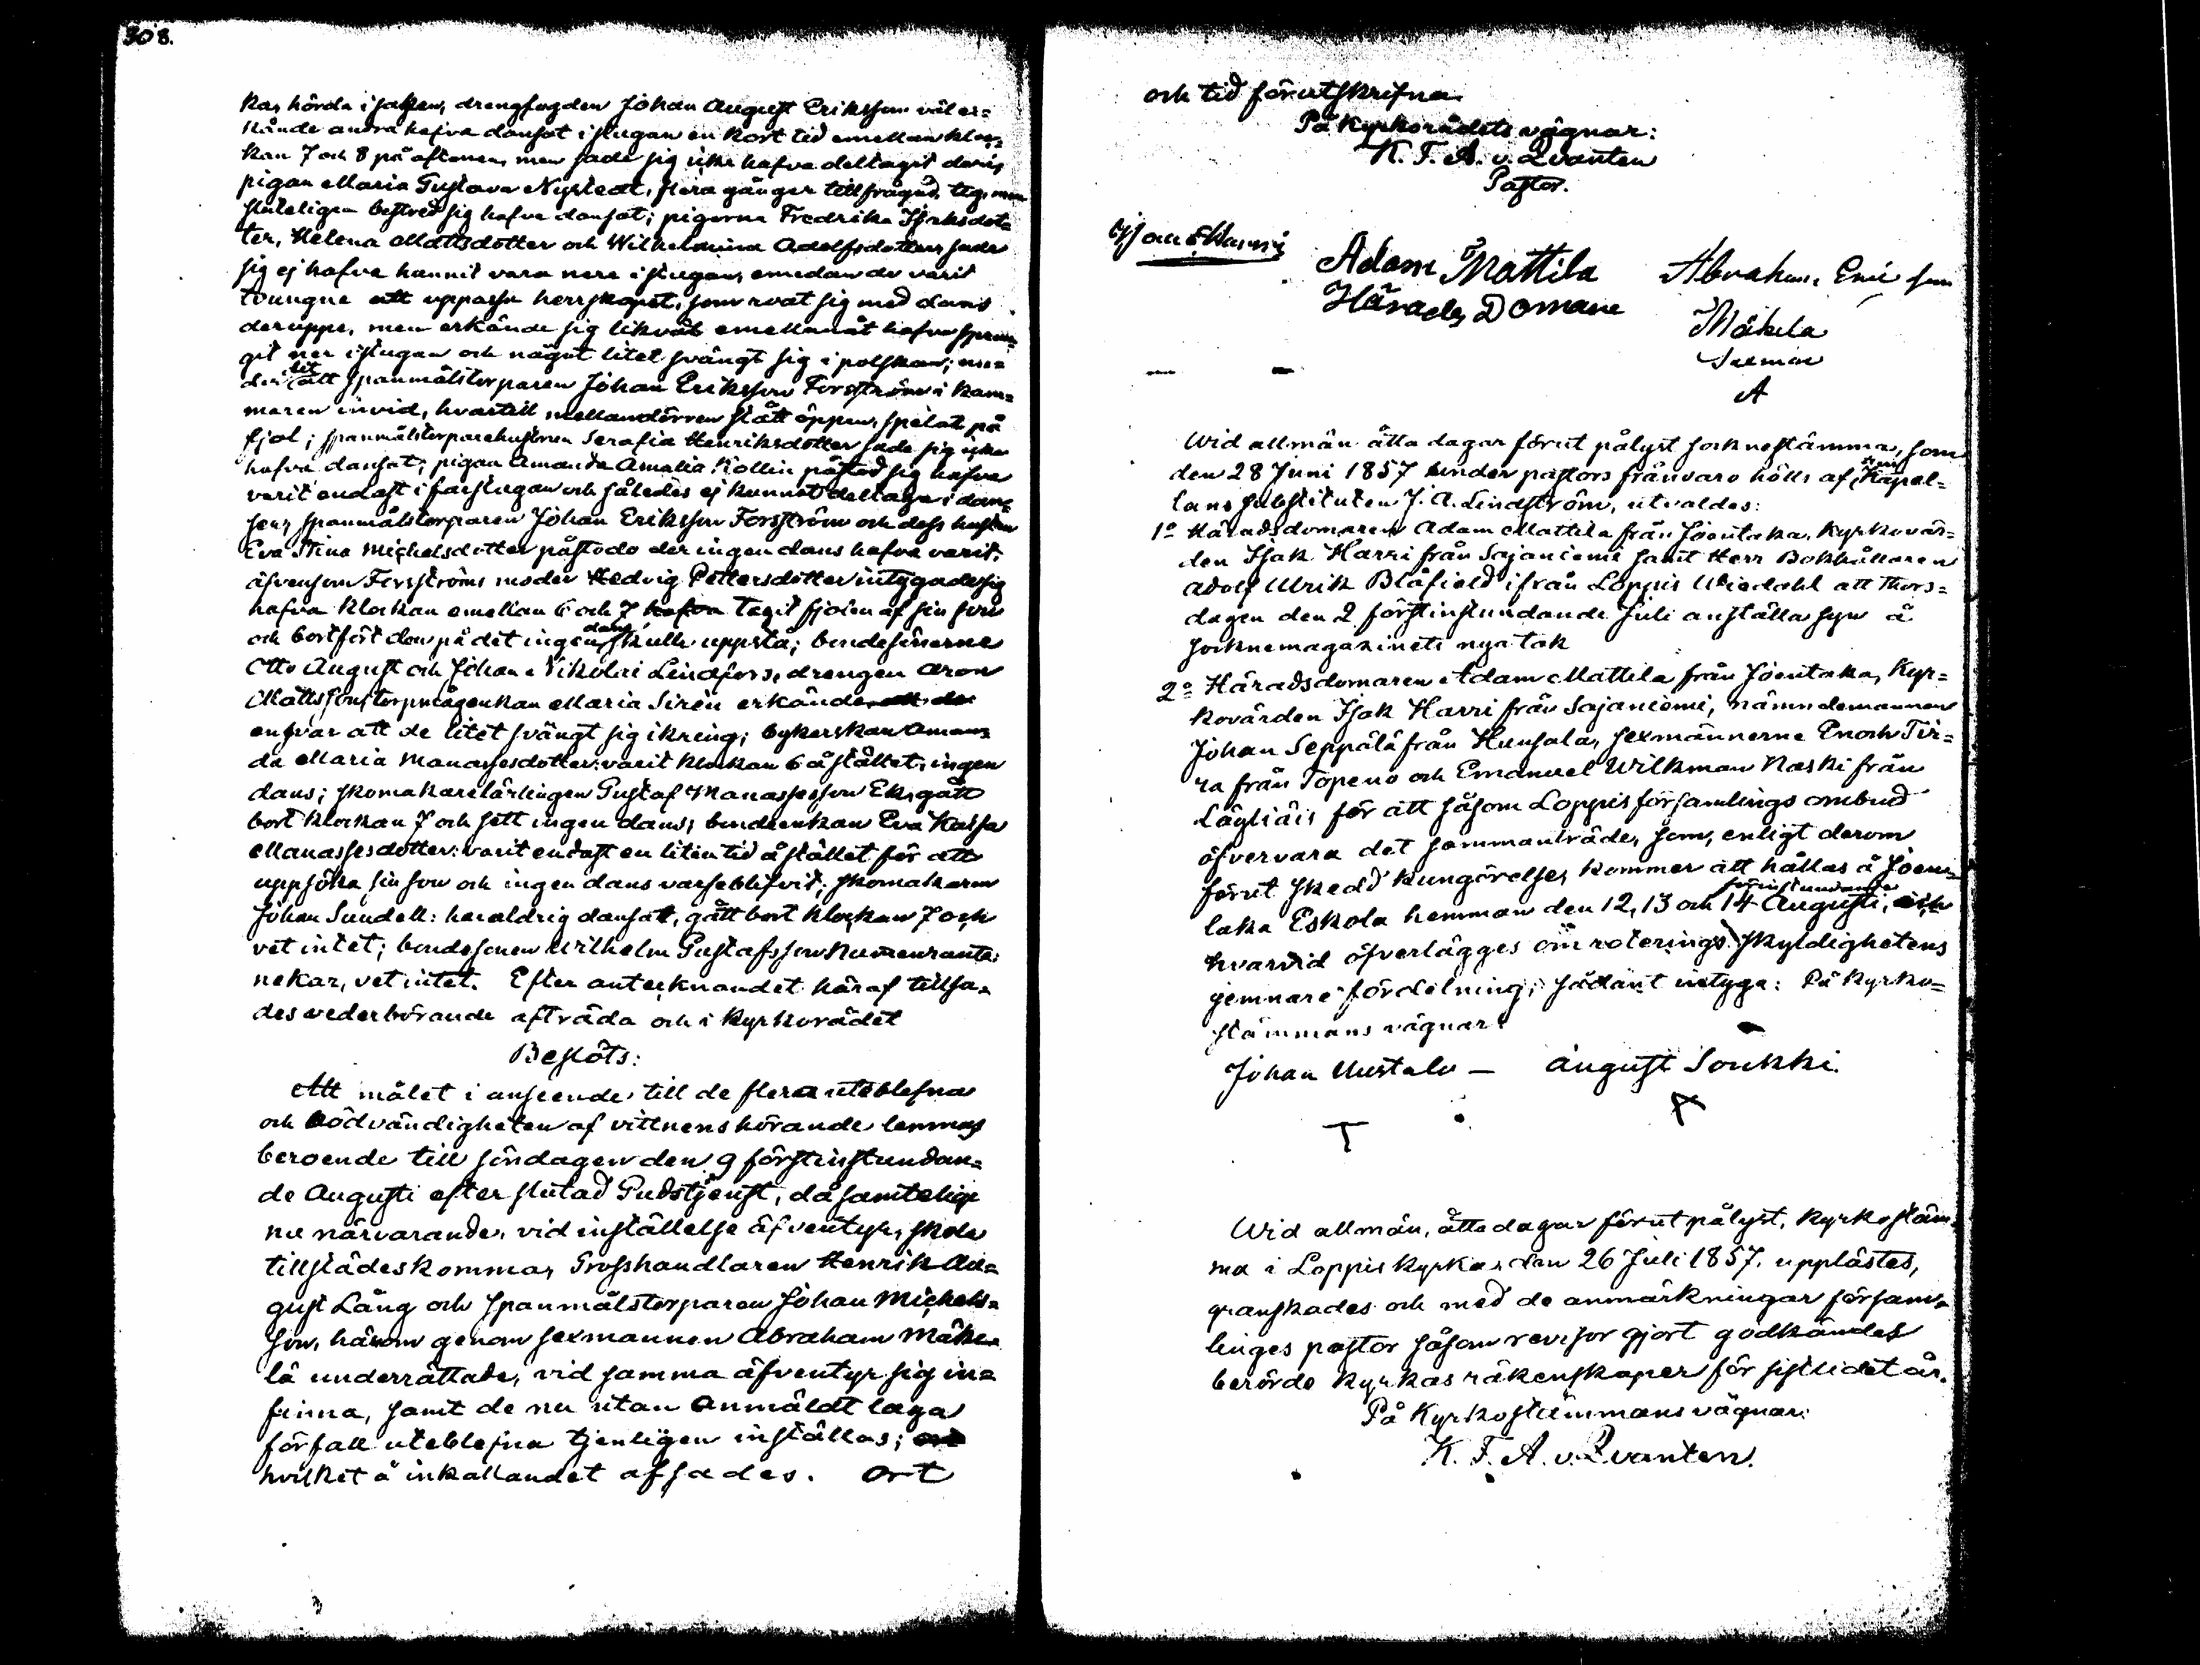 308.
kas hörda i saken, drengfogden Johan August Eriksson väl er=
kände andra hafva dansat i stugan en kort tid emellan kloc=
kan 7 och 8 på aftonen, men sade sig icke hafva deltagit deri,
pigan Maria Gustava Nystedt, flera gånger tillfrågad, teg, men
sluteligen bestred sig hafva dansat; pigorna Fredrika Isaksdot=
ter, Helena Mattsdotter och Wilhelmina Adolfsdotter sade
sig ej hafva hunnit vara nere i stugan, emedan de varit
tvungne att uppassa herrskapet, som roat sig med dans
deruppe, men erkände sig likväl emellanåt hafva sprun=
git ner i stugan och något litet svängt sig i polskan; me=
der att spanmålstorparen Johan Eriksson Forsström i kam=
maren invid, hvartill mellandörren stått öppen, spelat på
fjol; spanmålstorparehustrun Serafia Henriksdotter sade sig icke
hafva dansat; pigan Amanda Amalia Kollin påstod sig hafva
varit endast i farstugan och således ej kunnat deltaga i dan=
sen; spanmålstorparen Johan Eriksson Forsström och dess hustru
Eva Stina Michelsdotter påstodo der ingen dans hafva varit;
äfvensom Forsströms moder Hedvig Pettersdotter intygade sig
hafva klockan emellan 6 och 7 hafva tagit fjolen af sin son
och bortfört den på det ingen dans skulle uppstå; bondesönerne
Otto August och Johan Nikolai Lindfors, drengen Aron
Mattsson, torpmågenkan Maria Sirén erkände att de
enhvar att de litet svängt sig ikring; bykerskan Aman=
da Maria Manassesdotter: varit klockan 6 å stället, ingen
dans; skomakarelärlingen Gustaf Manassesson Ek, gått
bort klockan 7 och sett ingen dans; bondeenkan Eva Kaisa
Manassesdotter: varit endast en liten tid å stället för att
uppsöka sin son och ingen dans varseblifvit; skomakaren
Johan Sundell: har aldrig dansat, gått bort klockan 7 och
vet intet; bondesonen Wilhelm Gustafsson Nummenranta:
nekar, vet intet. Efter antecknandet häraf tillsa=
des vederbörande afträda och i Kyrkorådet
Beslöts:
Att målet i anseende till de flera uteblefna
och nödvändigheten af vittnens hörande lemnas
beroende till söndagen den 9 förstinstundan=
de Augusti efter slutad Gudstjenst, då samtelige
nu närvarande, vid inställelse äfventyr, skola
tillstädeskomma, Grosshandlaren Henrik Au=
gust Lång och spanmålstorparen Johan Michels=
son, härom genom sexmannen Abraham Mäke=
lä underrättade, vid samma äfventyr sig in=
finna, samt de nu utan anmäldt laga
förfall uteblefna tjenligen inställas;
hvilket å inkallandet afsades. Ort
och tid förutskrifna.
På Kyrkorådets vägnar:
K. F. A. v. Qvanten
Pastor.
Adam Mattila
Härads Domare
Abraham Eric son
Mäkela
A
Wid allmän åtta dagar förut pålyst socknestämma, som
den 28 Juni 1857 under pastors frånvaro hölls af Kapel=
lans substituten J. A. Lindström, utvaldes:
1o Häradsdomaren Adam Mattila från Joentaka, Kyrkovär=
den Isak Harri från Sajaniemi samt Herr Bokhållaren
Adolf Ulrik Blåfield ifrån Loppis Wiedahl att Thors=
dagen den 2 förstinstundande Juli anställa syn å
socknemagazinets nya tak
2o Häradsdomaren Adam Mattila från Joentaka, Kyr=
kovärden Isak Harri från Sajaniemi, nämndemannen
Johan Seppälä från Hunsala, sexmännerne Enoch Tir=
ra från Topeno och Emanuel Wilkman Naski från
Läyliäis för att såsom Loppis församlings ombud
öfvervara det sammanträde, som, enligt derom
förut skedd kungörelse, kommer att hållas å Joen=
taka Eskola hemman den 12, 13 och 14 förstinstundande Augusti,
hvarvid öfverlägges om roterings skyldighetens
jemnare fördelning; sådant intyga: På Kyrko=
stämmans vägnar:
Johan Uustalo — August Soukki
T
Wid allmän, åtta dagar förut pålyst, kyrkostäm=
ma i Loppis kyrka, den 26 Juli 1857, upplästes,
granskades och med de anmärkningar försam=
linges pastor såsom revisor gjort godkändes
berörde kyrkas räkenskaper för sistlidet år.
På Kyrkostämmans vägnar:
K. F. A. v. Qvanten.